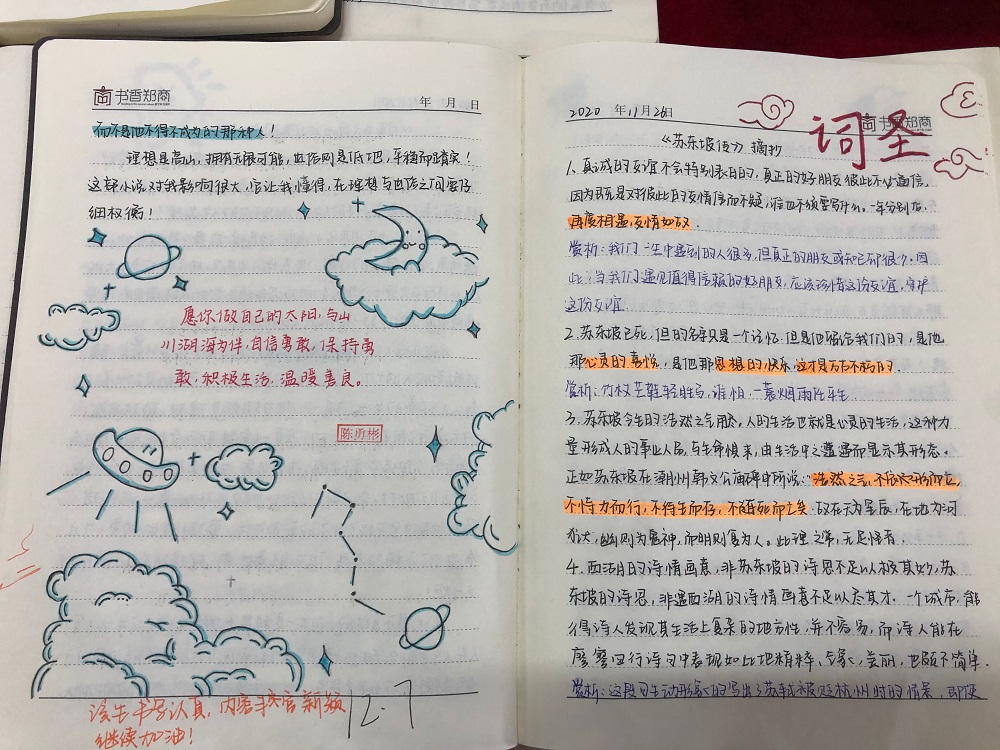 书香郑商
年 月 日
而不是他不得不成为的那种人！
理想是高山，拥有无限可能，山谷则是低吧，平稳而踏实！
这部小说对我影响很大，它让我懂得，在理想与山谷之间要仔
细权衡！
愿你做自己的太阳，与山
川湖海为伴，自信勇敢，保持勇
敢，积极生活，温暖善良。
陈勇彬
该生书写认真，内容
继续加油！
12.7
2020 年11月26日
书香郑商
词圣
《苏东坡传》摘抄
1、真诚的友谊不会特别表白的，真正的好朋友彼此不必通信，
因为既是对彼此的友情信而不疑，谁也不须要写什么。一年分别后，
再度相遇，友情如故．
赏析：我们一生中遇到的人很多，但真正的朋友或知己却很少。因
此，当我们遇见值得信赖的好朋友，应该珍惜这份友谊，守护
这份友谊
2、苏东坡已死，他的名字只是一个记忆．但是他留给我们的，是他
那心灵的喜悦，是他那思想的快乐，这才是万古不朽的．
赏析：竹杖芒鞋轻胜马，谁怕，一蓑烟雨任平生
3、苏东坡今生的浩然之气用尽。人的生活也就是心灵的生活，这种力
量形成人的事业人品，与生命俱来，由生活中之遭遇而显示其形态。
正如苏东坡在潮州韩文公庙碑中所说："浩然之气，不依形而立，
不恃力而行，不待生而存，不随死而亡矣．故在天为星辰，在地为河
岳，幽则为鬼神，而明则复为人。此理之常，无足怪者．
4、西湖的诗情画意，非苏东坡的诗思不足以极其妙，苏
东坡的诗思，非遇西湖的诗情画意不足以尽其才．一个城市，能
得诗人发现其生活上复杂的地方性，并不容易，而诗人能在
寥寥四行诗句中表现如此地精粹、气象、美丽，也颇不简单．
赏析：这段句生动形象的写出了苏轼被贬杭州时的情景，即便